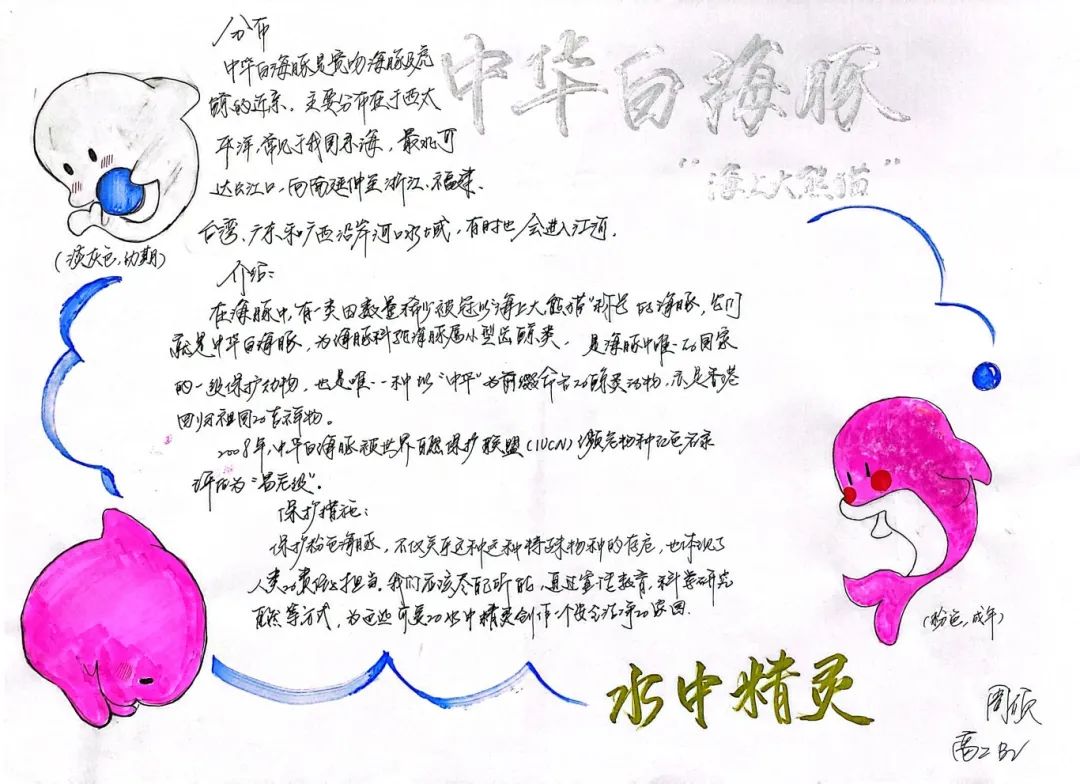 中华白海豚
“海上大熊猫”
分布
中华白海豚是宽吻海豚及虎
鲸的近亲。主要分布在于西太
平洋,常见于我国东海,最北可
达长江口,向南延伸至浙江、福建、
台湾、广东和广西沿岸河口水域,有时也会进入江河。
(淡灰色,幼期)
介绍:
在海豚中,有一类因数量稀少被冠以“海上大熊猫”称号的海豚,它们
就是中华白海豚,为海豚科驼海豚属小型齿鲸类。是海豚中唯一的国家
的一级保护动物,也是唯一一种以“中华”为前缀命名的鲸类动物,亦是香港
回归祖国的吉祥物。
2008年,中华白海豚被世界自然保护联盟(IUCN)濒危物种红色名录
评估为“易危级”。
保护措施:
保护粉色海豚,不仅关乎这种特殊物种的存危,也体现了
人类的责任与担当。我们应该尽己所能,通过宣传教育,科学研究
等方式,为这些可爱的水中精灵创作一个安全洁净的家园.
(粉色,成年)
水中精灵
周硕
高二